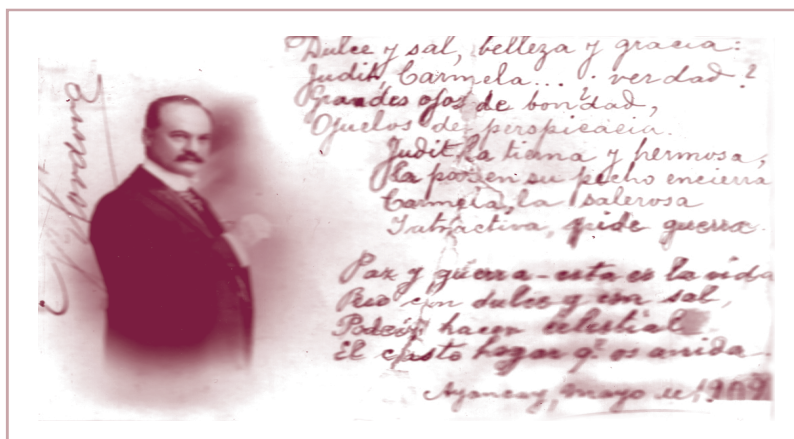 Dulce y sal, belleza y gracia:
Judit, Carmela... verdad?
Grandes ojos de bondad,
Ojuelos de perspicacia.
Judit, la tierna y hermosa,
la paz en su pecho encierra
Carmela, la salerosa
Y atractiva, pide guerra.
Paz y guerra - esta es la vida
Pero con dulce y con sal,
Podéis hacer celestial
El casto hogar q.e os anida
Ayancay, mayo de 1909